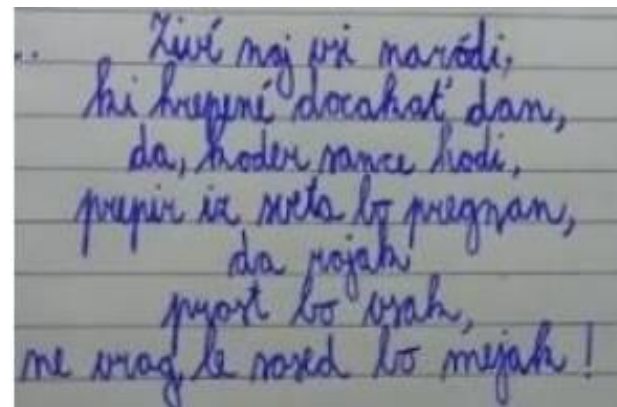 ... Živé naj vsi naródi,
ki hrepené docakat' dan,
da, koder sonce hodi,
prepir iz sveta bo pregnan,
da rojak
prost bo vsak,
ne vrag, le sosed bo mejak!